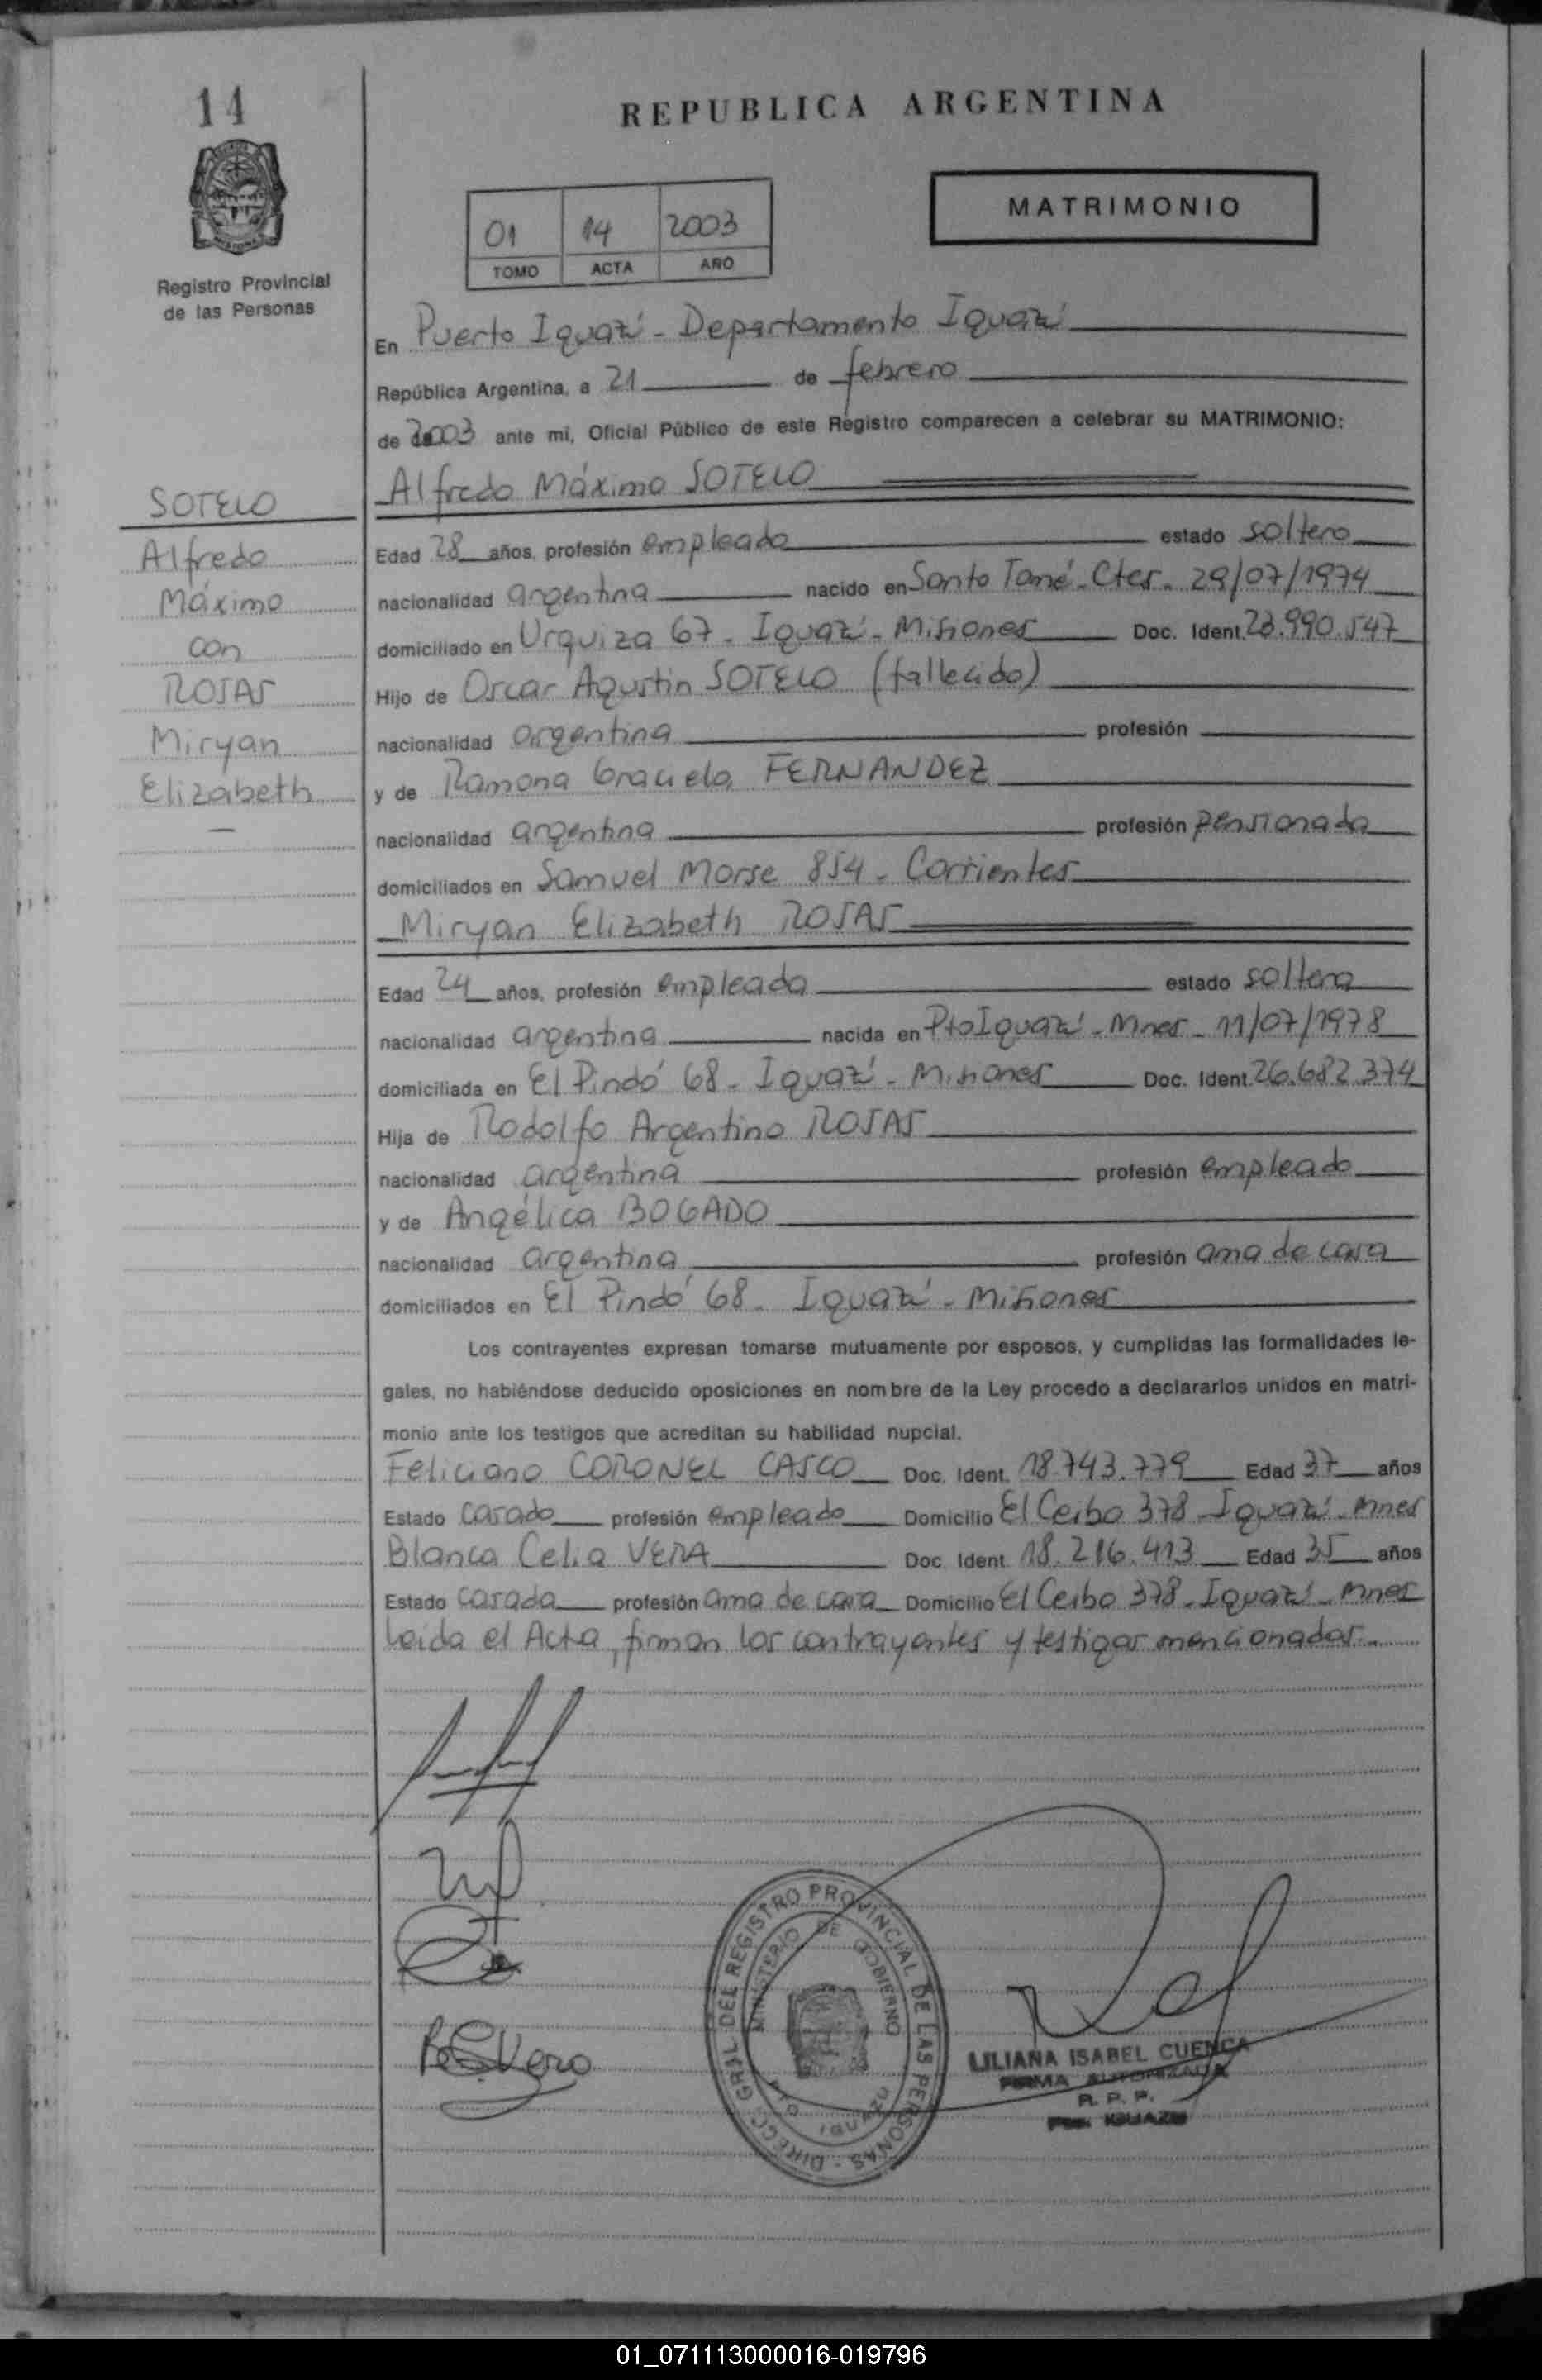 14
REPUBLICA ARGENTINA
01 14 2003
TOMO ACTA AÑO
MATRIMONIO
Registro Provincial
de las Personas
En Puerto Iguazú - Departamento Iguazú
República Argentina, a 21 de febrero
de 2003 ante mi, Oficial Público de este Registro comparecen a celebrar su MATRIMONIO:
Alfredo Máximo SOTELO
SOTELO
Alfredo
Máximo
con
ROJAS
Miryan
Elizabeth
Edad 28 años, profesión empleado estado soltero
nacionalidad argentina nacido en Santo Tomé - Ctes - 29/07/1974
domiciliado en Urquiza 67 - Iguazú - Misiones Doc. Ident. 23.990.547
Hijo de Oscar Agustin SOTELO (fallecido)
nacionalidad argentina profesión
y de Ramona Graciela FERNANDEZ
nacionalidad argentina profesión pensionada
domiciliados en Samuel Morse 854 - Corrientes
Miryan Elizabeth ROJAS
Edad 24 años, profesión empleada estado soltera
nacionalidad argentina nacida en Pto Iguazú - Mnes - 11/07/1978
domiciliada en El Pindó 68 - Iguazú - Misiones Doc. Ident. 26.682.374
Hija de Rodolfo Argentino ROJAS
nacionalidad argentina profesión empleado
y de Angélica BOGADO
nacionalidad argentina profesión ama de casa
domiciliados en El Pindó 68 - Iguazú - Misiones
Los contrayentes expresan tomarse mutuamente por esposos, y cumplidas las formalidades le-
gales, no habiéndose deducido oposiciones en nombre de la Ley procedo a declararlos unidos en matri-
monio ante los testigos que acreditan su habilidad nupcial.
Feliciano CORONEL CASCO Doc. Ident. 18.743.779 Edad 37 años
Estado casado profesión empleado Domicilio El Ceibo 378 - Iguazú - Mnes
Blanca Celia VERA Doc. Ident. 18.216.413 Edad 35 años
Estado casada profesión ama de casa Domicilio El Ceibo 378 - Iguazú - Mnes
Leída el Acta, firman los contrayentes y testigos mencionados
DIRECC. GRAL. DEL REGISTRO PROVINCIAL DE LAS PERSONAS
MINISTERIO DE GOBIERNO
LILIANA ISABEL CUENCA
FIRMA AUTORIZADA
R. P. P.
Pto. IGUAZU
01_071113000016-019796